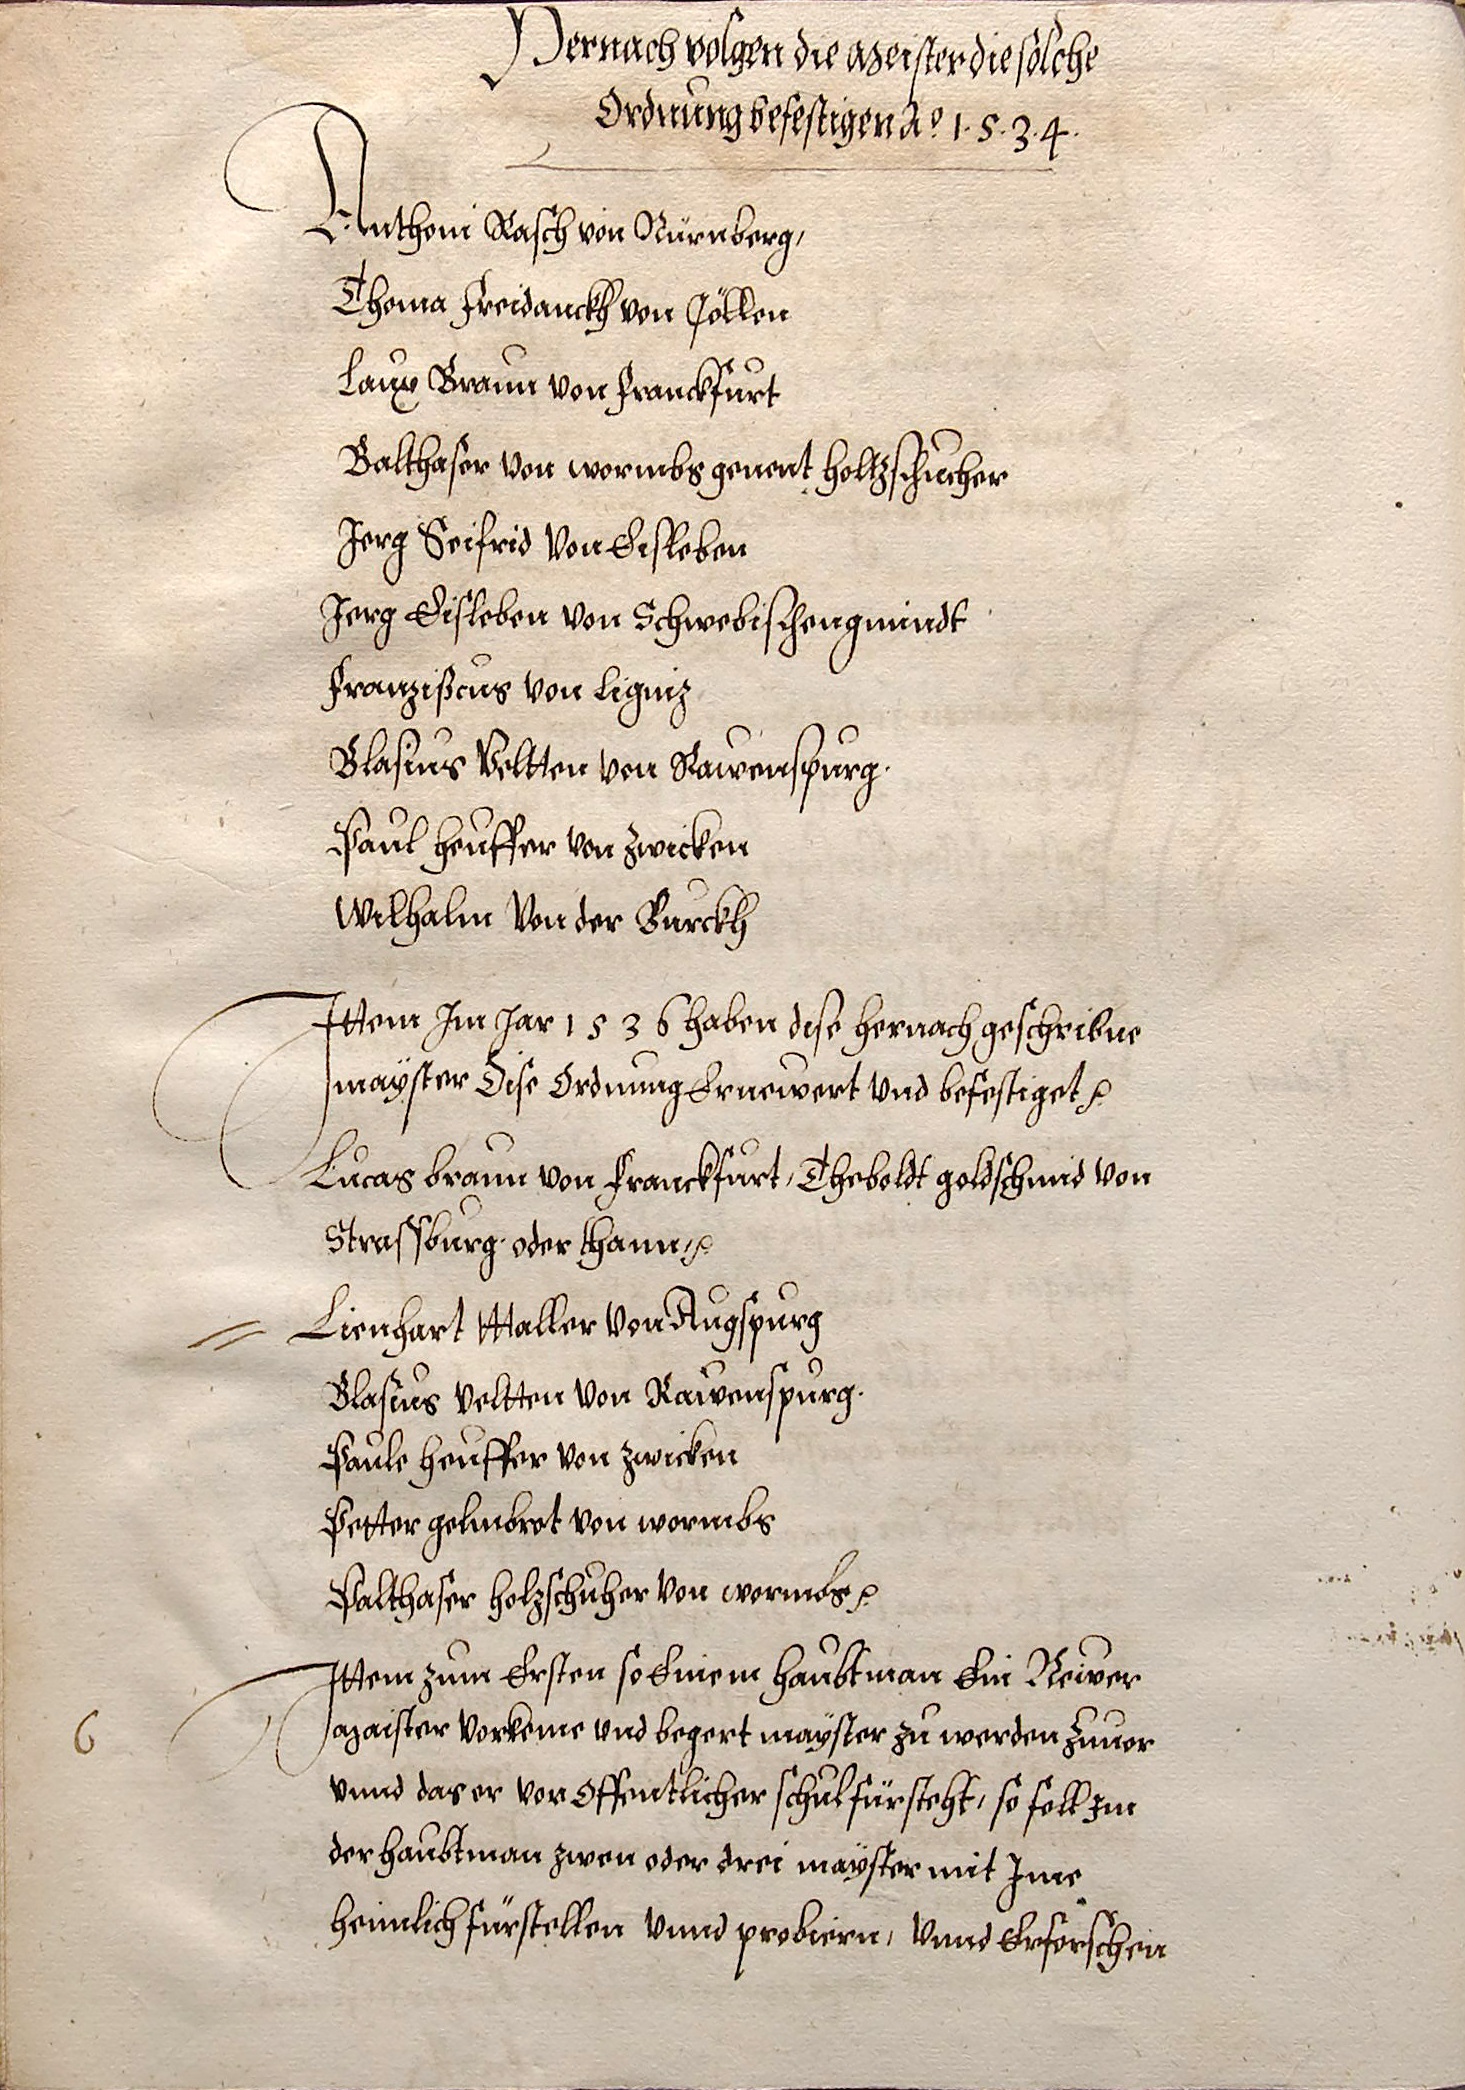 Hernach volgen die Meister die solche
Ordnung befestigen Ao 1.5.3.4.
Anthoni Rasch von Nürnberg,
Thoma Freidanckh von Cöllen
Laux Braun von Franckfurt
Balthaser von wormbs genent holtzschucher
Jerg Seifrid von Eisleben
Jerg Eisleben von Schwebischengmündt
Franzißcus von ligniz
Blasius Veltten von Rawenspurg.
Paul heuffer von zwicken
Wilhalm Von der Burckh
Ittem Im Jar 1536 haben dise hernach geschribne
mayster dise Ordnung Ernewert vnd befestiget
Lucas braun von Franckfurt, Theboldt goldschmid von
Strassburg oder thann,
Lienhart Haller von Augspurg
Blasius veltten von Rawenspurg.
Paule heuffer von zwicken
Petter gelmbrot von wormbs
Palthaser holzschuher von wormbs
Ittem zum Ersten so Einem haubtman Ein Neiwer
6 Maister vorkeme vnd begert mayster zu werden Zuuor
vnnd das er vor Offentlicher schul fürsteht, so soll Im
der haubtman zwen oder drei mayster mit Ime
heimlich fürstellen vnnd probiern, vnnd Erforschen